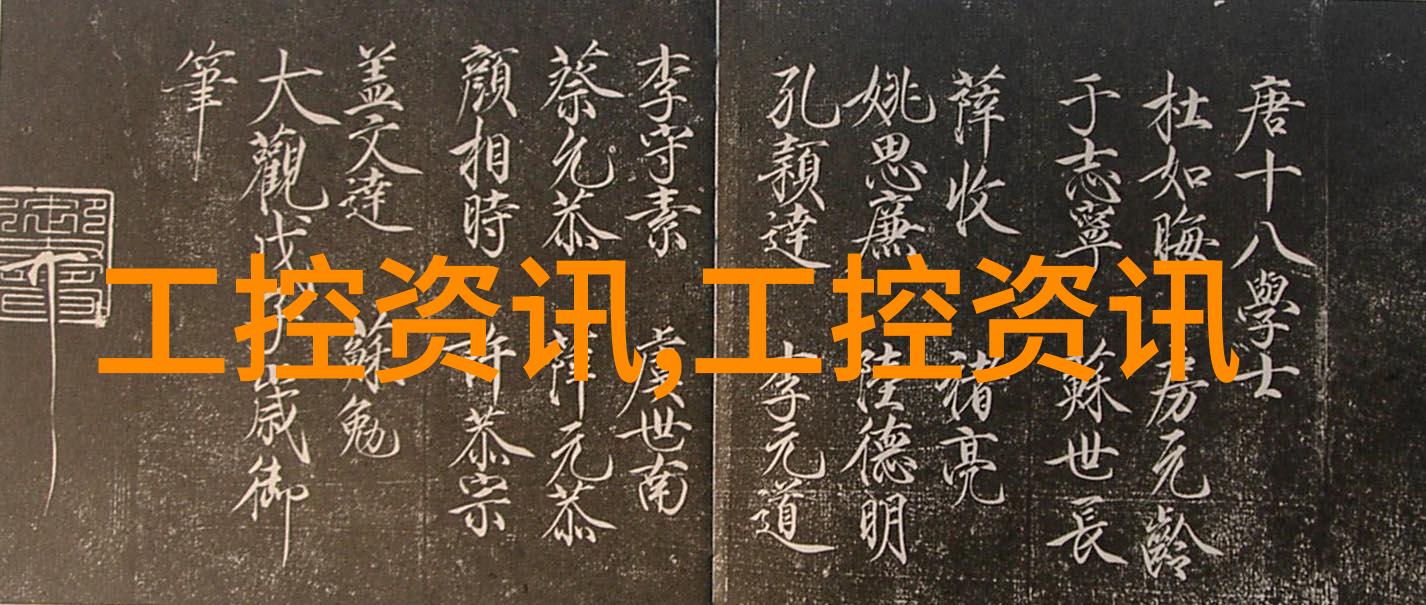 唐十八學士
杜如晦 房元齡
于志寧 蘇世長
薛收 褚亮
姚思廉 陸德明
孔穎達 李元道
李守素 虞世南
蔡允恭 薛元恭
顏相時 許恭宗
盖文達 蘇勉
大觀戊子歲御
筆
工控资讯,工控资讯